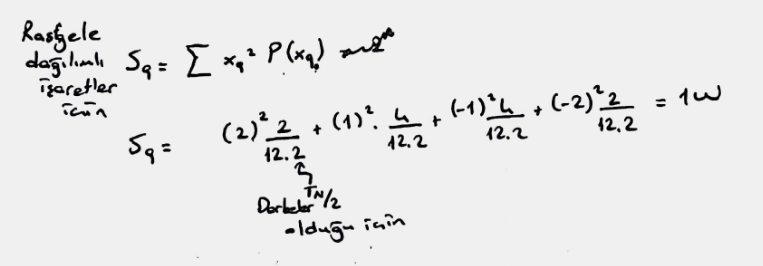 Rasgele
dağılımlı
işaretler
için
Sq = Σ xq² P(xq)
Sq = (2)² 2/12.2 + (1)² . 4/12.2 + (-1)² 4/12.2 + (-2)² 2/12.2 = 1W
Darbeler TN/2
olduğu için